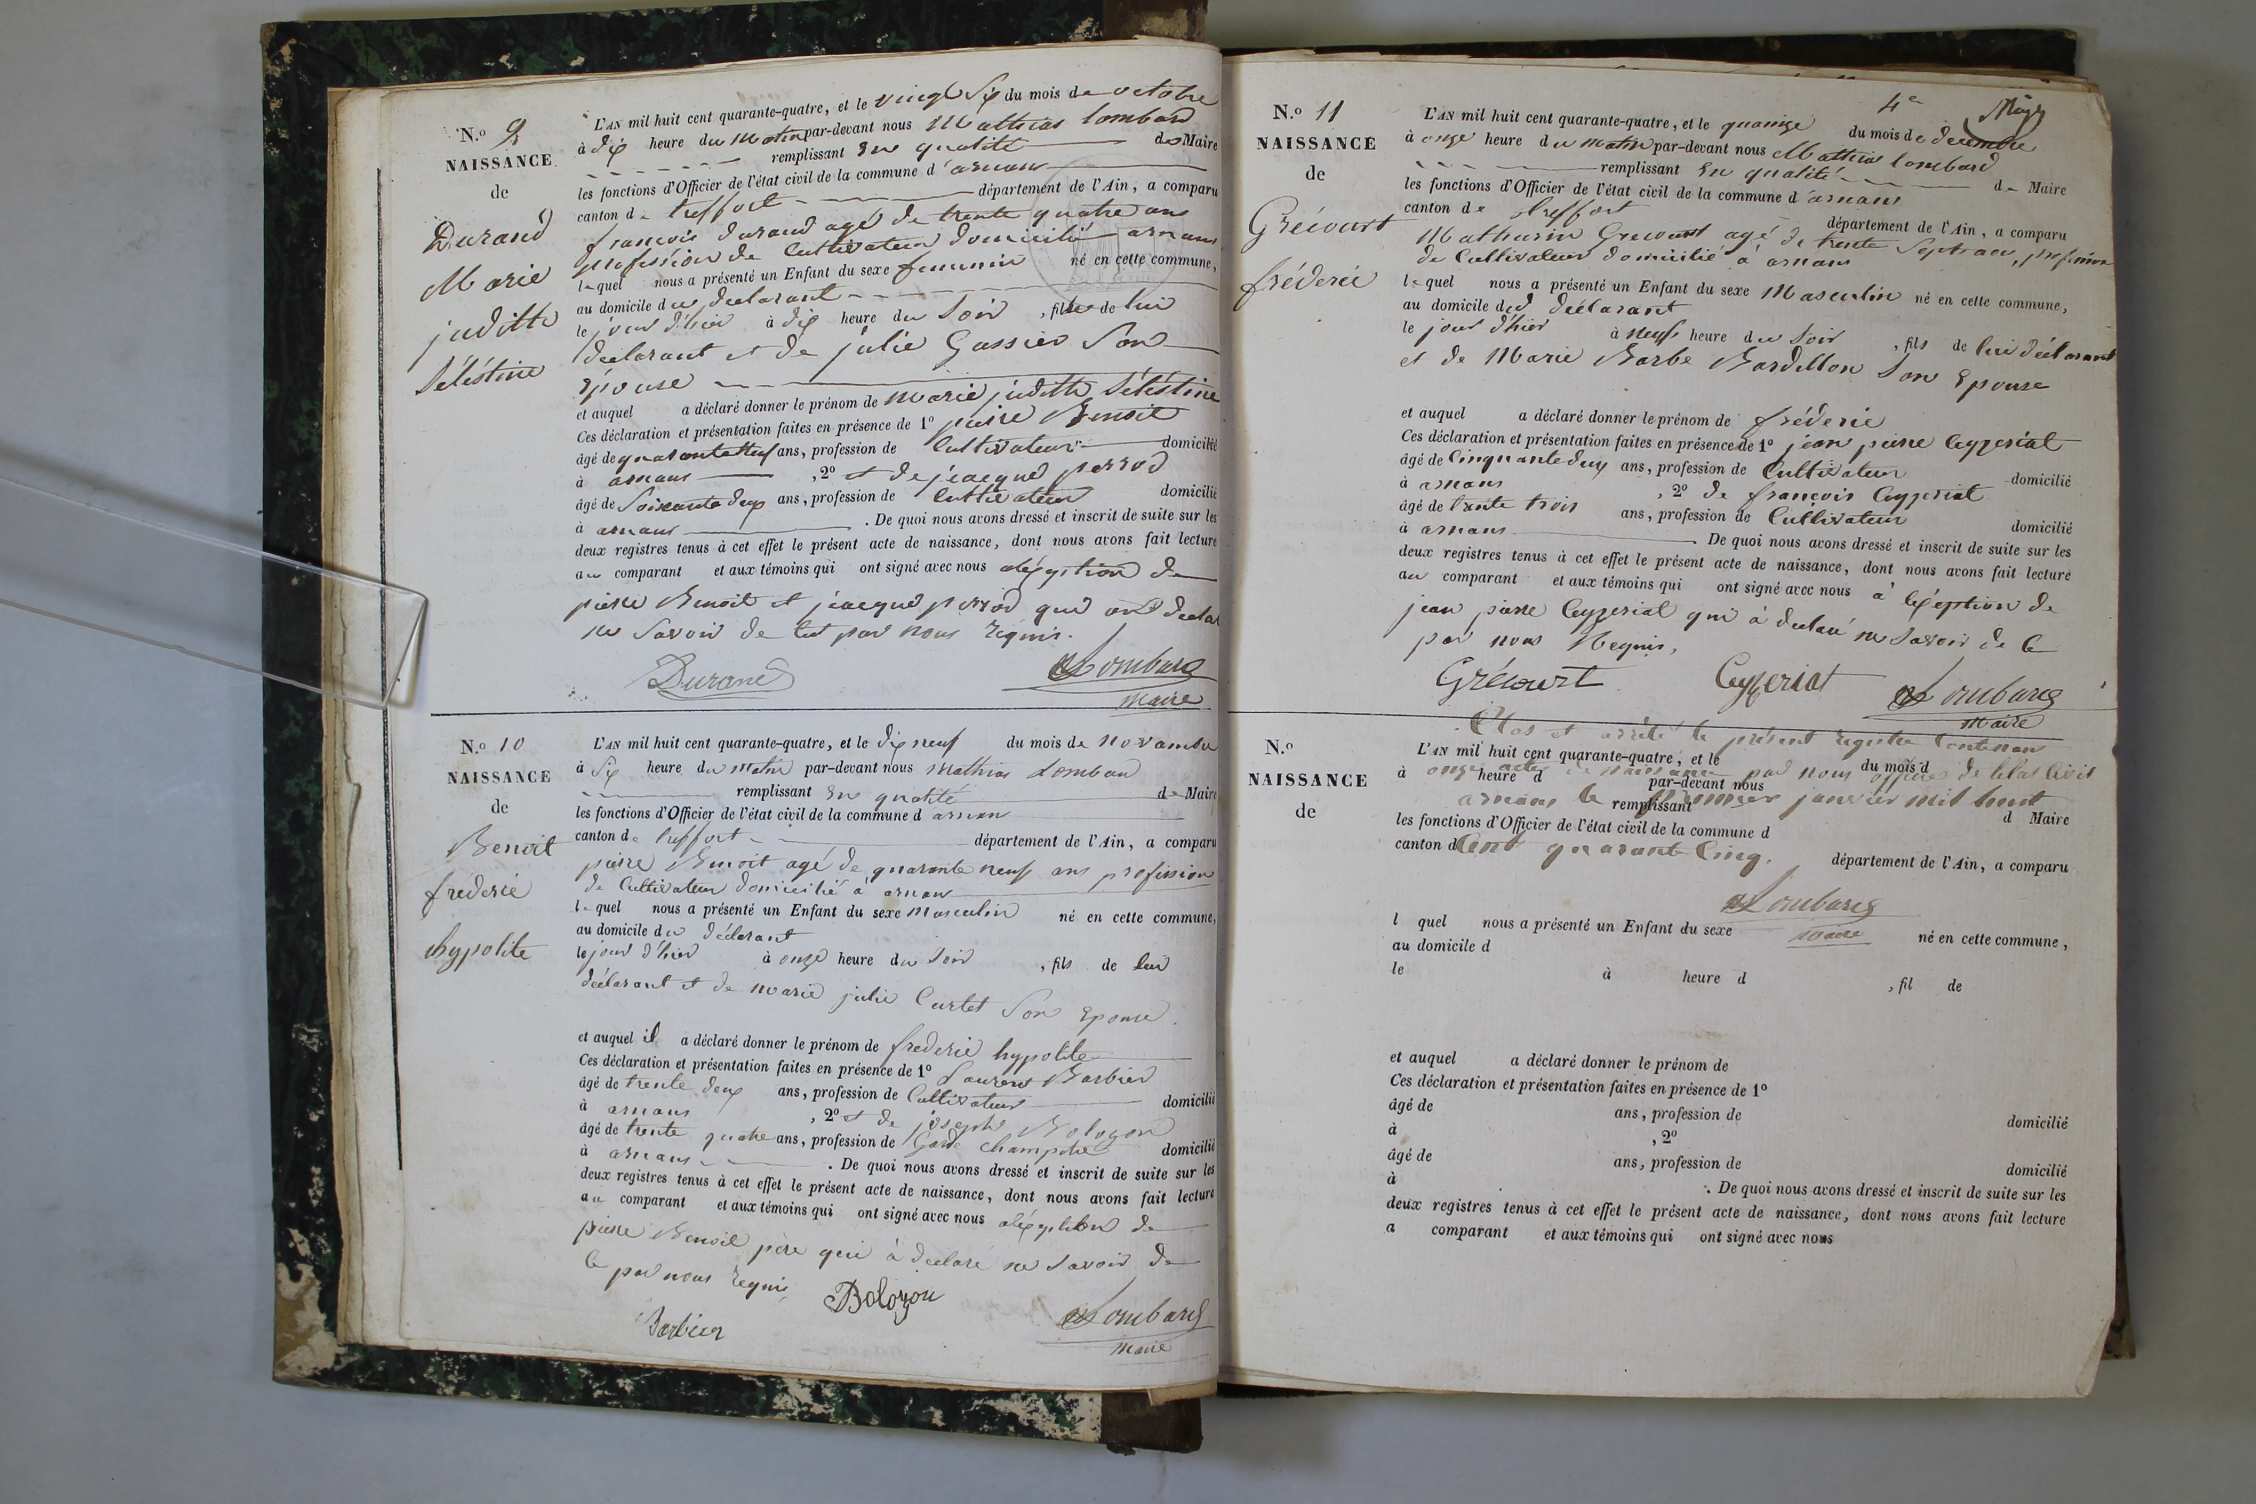 N.º 9
NAISSANCE
de
Durand
Marie
juditte
Séléstine
L'AN mil huit cent quarante-quatre, et le vingt Six du mois de octobre
à dix heure du Matin par-devant nous Mathias lombard
remplissant En qualité de Maire
les fonctions d'Officier de l'état civil de la commune d'arnans
canton de treffort département de l'Ain, a comparu
françois durand agé de trente quatre ans
profession de Cultivateur domicilié arnans
lequel nous a présenté un Enfant du sexe femminin né en cette commune,
au domicile du declarant
le jour d'hier à dix heure du Soir, fille de lui
declarant et de julie Gassier Son
Epouse
et auquel a déclaré donner le prénom de marie juditte Séléstine
Ces déclaration et présentation faites en présence de 1º pierre Benoit
âgé de quarante neuf ans, profession de Cultivateur domicilié
à arnans, 2º et de jeacque perrod
âgé de Soixante deux ans, profession de Cultivateur domicilié
à arnans. De quoi nous avons dressé et inscrit de suite sur les
deux registres tenus à cet effet le présent acte de naissance, dont nous avons fait lecture
au comparant et aux témoins qui ont signé avec nous aléxception de
pierre Benoit et jeacque perrod qui ont declar
ne Savoir de par nous requis.
Durand Lombard
Maire
N.º 10
NAISSANCE
de
Benoit
frederic
hypolite
L'AN mil huit cent quarante-quatre, et le dix neuf du mois de novembre
à Six heure du Matin par-devant nous Mathias Lombard
remplissant En qualité de Maire
les fonctions d'Officier de l'état civil de la commune d arnans
canton de treffort département de l'Ain, a comparu
pierre Benoit agé de quarante neuf ans profession
de Cultivateur domicilié à arnans
lequel nous a présenté un Enfant du sexe Masculin né en cette commune,
au domicile du déclarant
le jour d'hier à onze heure du Soir, fils de lui
déclarant et de marie julie Curtet Son Epouse.
et auquel il a déclaré donner le prénom de frederic hypolite
Ces déclaration et présentation faites en présence de 1º Laurent Barbier
âgé de trente deux ans, profession de Cultivateur domicilié
à arnans, 2º et de joseph Bologon
âgé de trente quatre ans, profession de Garde Champetre domicilié
à arnans. De quoi nous avons dressé et inscrit de suite sur les
deux registres tenus à cet effet le présent acte de naissance, dont nous avons fait lecture
au comparant et aux témoins qui ont signé avec nous aléxception de
pierre Benoit père qui à declaré ne Savoir de
ce par nous requis
Barbier Bologon Lombard
Maire
4e
N.º 11
NAISSANCE
de
Grécourt
fréderic
L'AN mil huit cent quarante-quatre, et le quainze du mois de decembre
à onze heure du matin par-devant nous Mathias lombard
remplissant En qualité de Maire
les fonctions d'Officier de l'état civil de la commune d'arnans
canton de treffort département de l'Ain, a comparu
Mathurin Grecourt agé de trente Sept ans, profession
de Cultivateur domicilié à arnans
lequel nous a présenté un Enfant du sexe Masculin né en cette commune,
au domicile du déclarant
le jour d'hier à neuf heure du Soir, fils de lui déclarant
et de Marie Barbe Bardillon Son Epouse
et auquel a déclaré donner le prénom de fréderic
Ces déclaration et présentation faites en présence de 1º jean pierre Ceyzeriat
âgé de Cinquante deux ans, profession de Cultivateur domicilié
à arnans, 2º de françois Ceyzeriat
âgé de trente trois ans, profession de Cultivateur domicilié
à arnans. De quoi nous avons dressé et inscrit de suite sur les
deux registres tenus à cet effet le présent acte de naissance, dont nous avons fait lecture
au comparant et aux témoins qui ont signé avec nous à lexéption de
jean pierre Ceyzeriat qui à declaré ne Savoir de ce
par nous Requis,
Grécourt Ceyzeriat Lombard
Maire
Clos et arrêté le présent registre Contenan
onze actes de naissance par nous officier de l'etat Civil
arnans le premier janvier mil huit
Cent quarante Cinq.
Lombard
Maire
N.º
NAISSANCE
de
L'AN mil huit cent quarante-quatre, et le du mois d
à heure d par-devant nous
remplissant d Maire
les fonctions d'Officier de l'état civil de la commune d
canton d département de l'Ain, a comparu
l quel nous a présenté un Enfant du sexe né en cette commune,
au domicile d
le à heure d, fil de
et auquel a déclaré donner le prénom de
Ces déclaration et présentation faites en présence de 1º
âgé de ans, profession de domicilié
à, 2º
âgé de ans, profession de domicilié
à. De quoi nous avons dressé et inscrit de suite sur les
deux registres tenus à cet effet le présent acte de naissance, dont nous avons fait lecture
a comparant et aux témoins qui ont signé avec nous